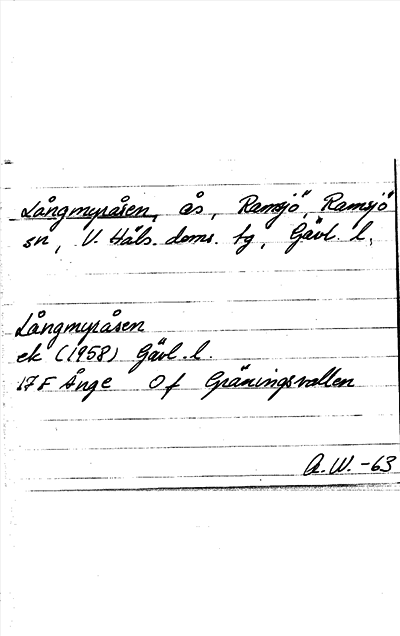 Långmyråsen, ås, Ramsjö, Ramsjö
sn, V. Häls. doms. tg, Gävl. l.
Långmyråsen
ek (1958) Gävl. l.
17 F Ånge 0 f Gräningsvallen
A.W. -63